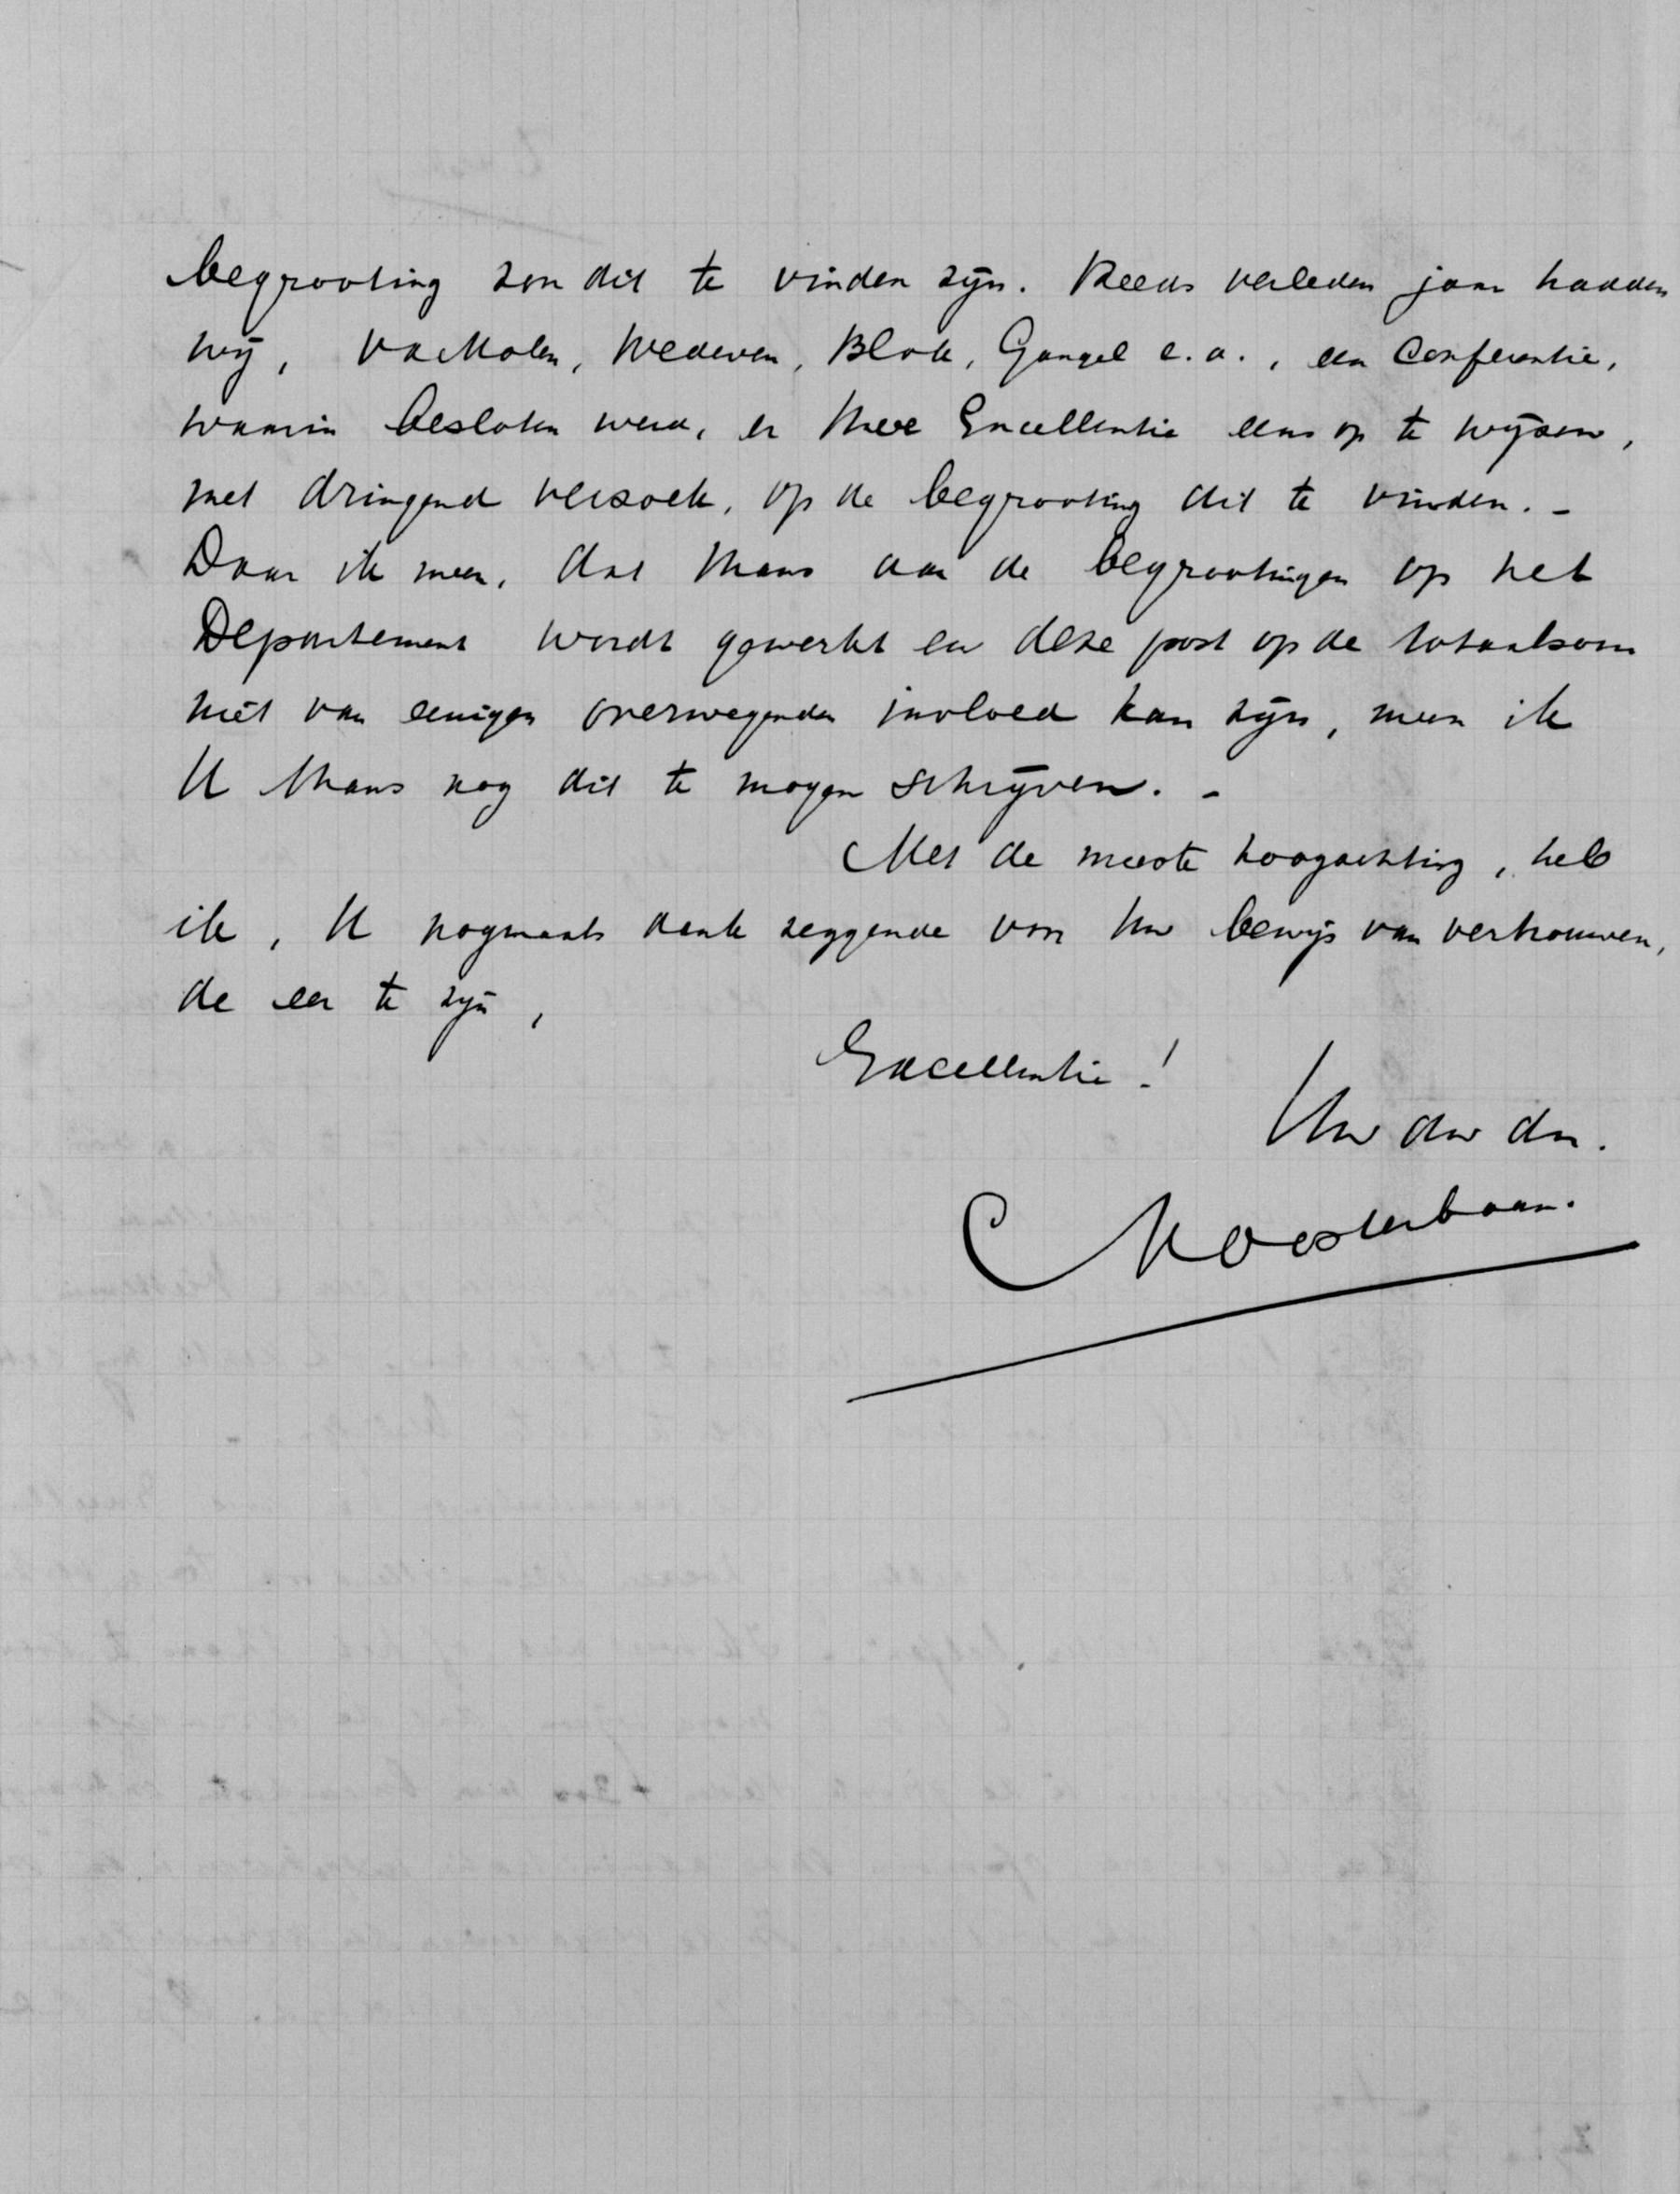 begrooting zou dit te vinden zijn. Reeds verleden jaar hadden
wij, Blok, Gangel e.a., een Conferentie,
waarin besloten werd, er Uwe Excellentie eens op te wijzen,
met dringend verzoek, op de begrooting dit te vinden. -
Daar ik meen, dat thans aan de begrootingen op het
Departement wordt gewerkt en deze post op de totaalsom
niet van eenigen overwegenden invloed kan zijn, meen ik
U thans nog dit te mogen schrijven. -
Met de meeste hoogachting, heb
ik, U nogmaals dank zeggende voor Uw bewijs van vertrouwen,
de eer te zijn,
Excellentie!
Uw dw dn.
Oosterbaan.